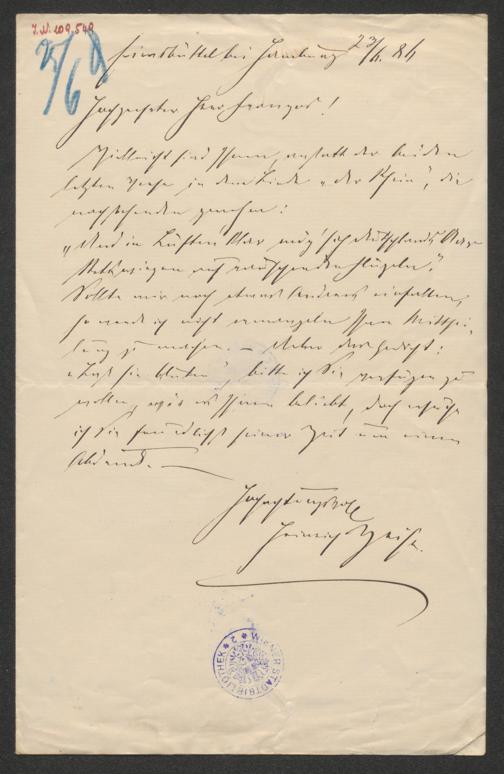 I.N. 109.549
25/6
Eimsbüttel bei Hamburg 23/6. 86
Hochgeehrter Herr Franzos!
Vielleicht sind Ihnen, anstatt der beiden
letzten Verse in dem Liede „Der Rhein“, die
nachstehenden genehm:
„Und in Lüften klar mög' sich Deutschlands Aar
wiegen auf rauschenden Flügeln.“
Sollte mir noch etwas Anderes einfallen,
so werde ich nicht ermangeln Ihnen Mitthei-
lung zu machen. – Ueber das Gedicht:
„Laß sie “, bitte ich Sie verfügen zu
wollen, wie es Ihnen beliebt, doch ersuche
ich Sie freundlichst seiner Zeit um einen
Abdruck. —
Hochachtungsvoll
Heinrich Zeise.
WIENER STADTBIBLIOTHEK